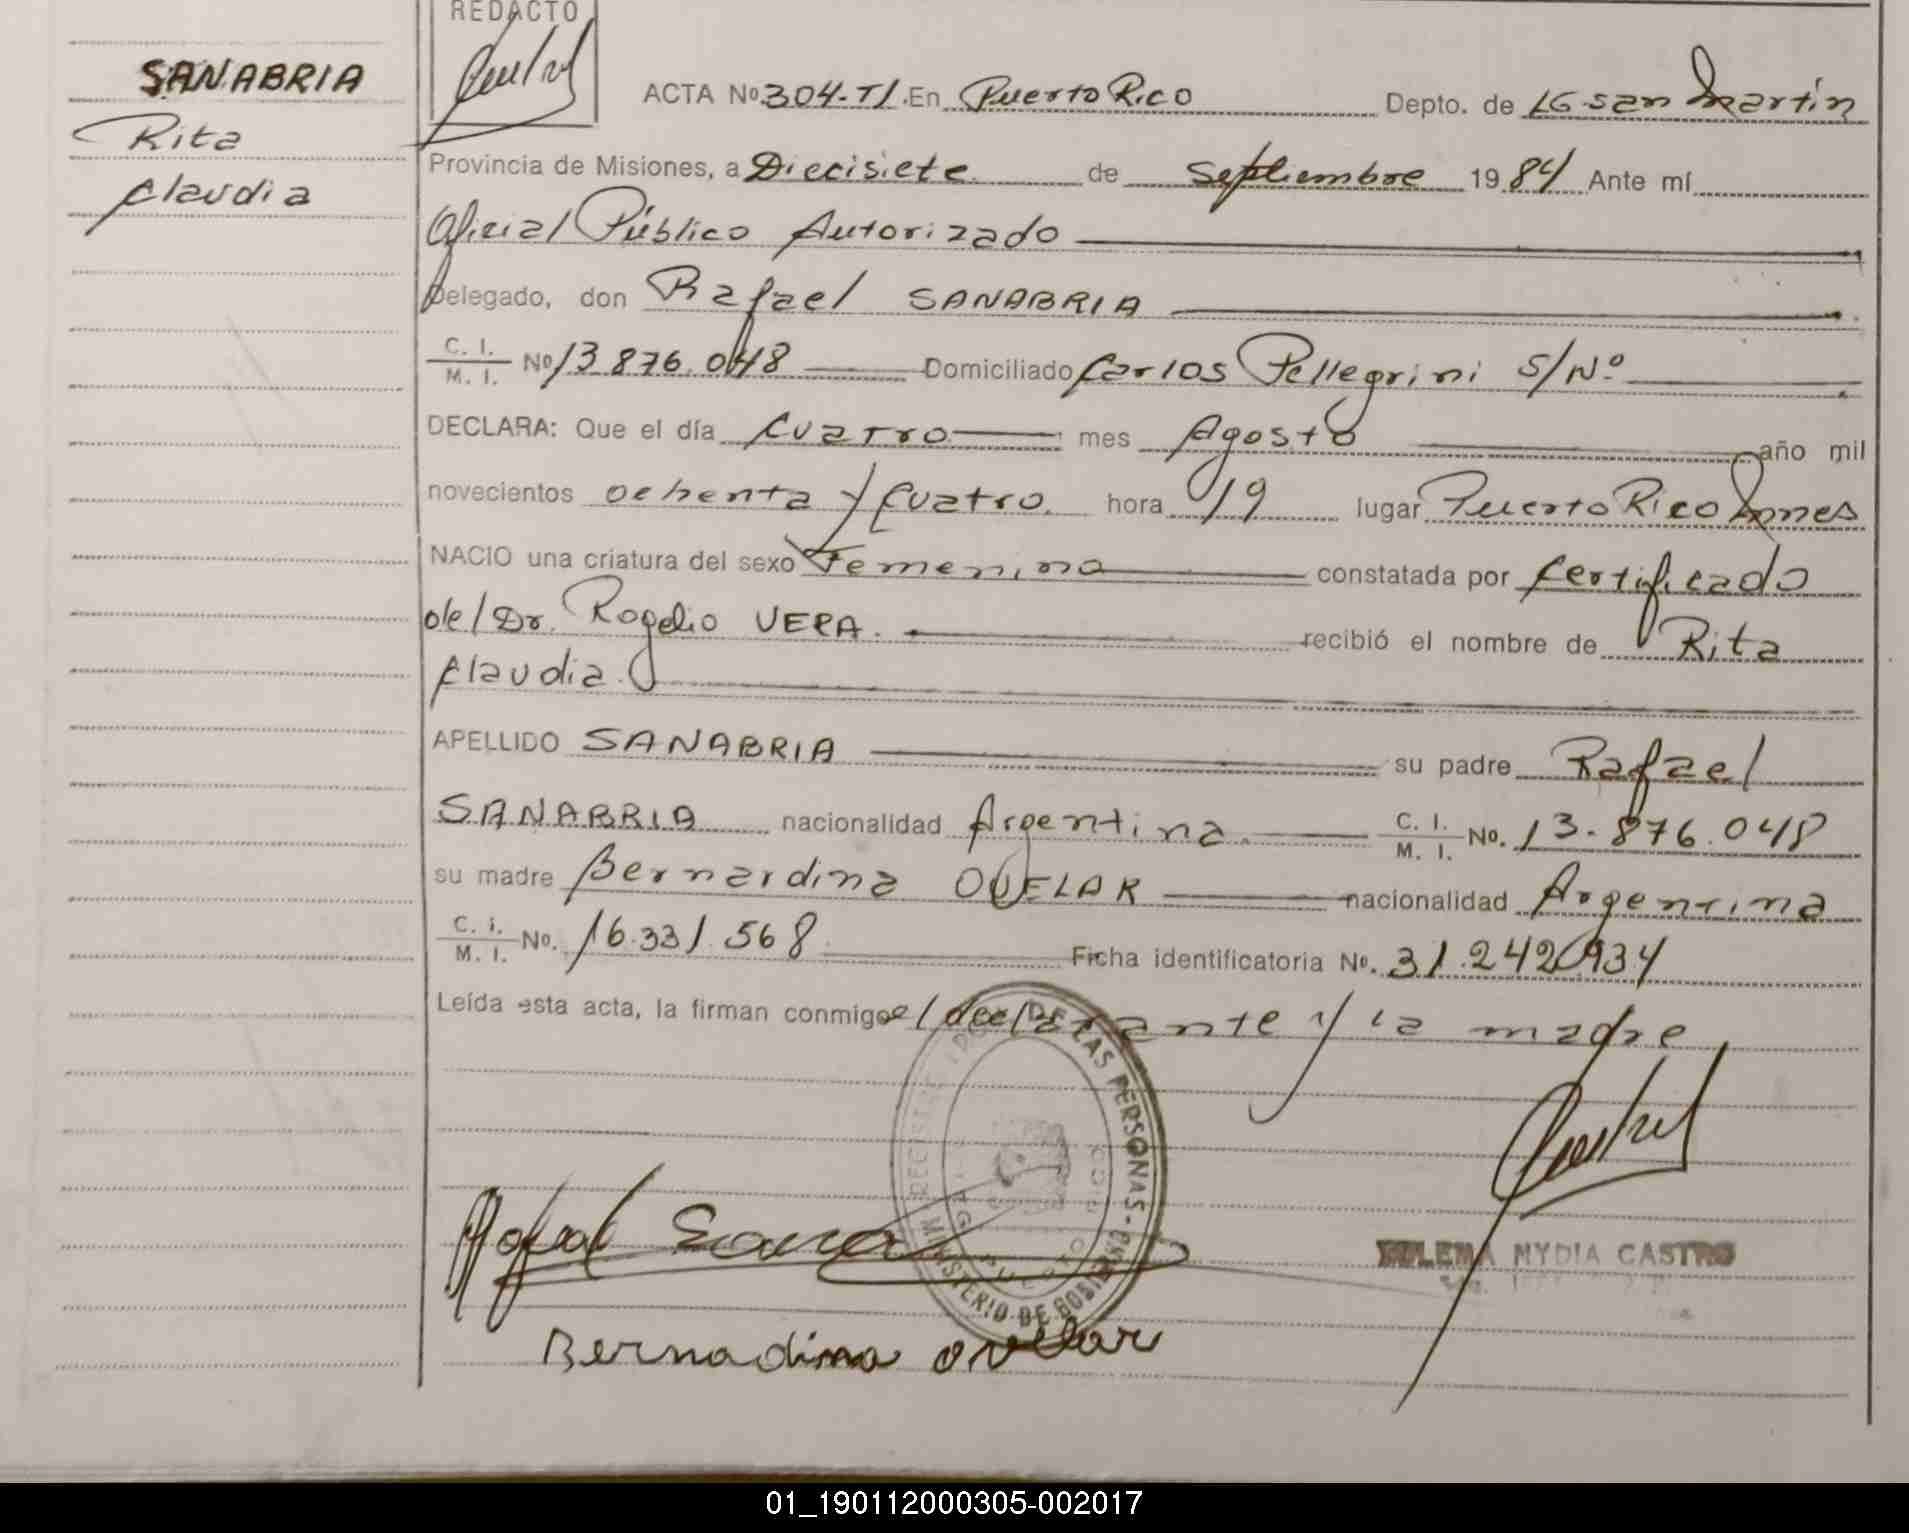 REDACTO
SANABRIA
Rita
Claudia
ACTA Nº 304-T1. En Puerto Rico Depto. de LG. San Martín
Provincia de Misiones, a Diecisiete de Septiembre 1984 Ante mí
Oficial Público Autorizado
Delegado, don Rafael SANABRIA
C. I. / M. I. Nº 13.876.048 Domiciliado Carlos Pellegrini S/Nº
DECLARA: Que el día Cuatro mes Agosto año mil
novecientos ochenta y Cuatro. hora 19 lugar Puerto Rico Mnes
NACIO una criatura del sexo Femenino constatada por Certificado
del Dr. Rogelio VERA. recibió el nombre de Rita
Claudia.
APELLIDO SANABRIA su padre Rafael
SANABRIA nacionalidad Argentina. C. I. / M. I. No. 13.876.048
su madre Bernardina OVELAR nacionalidad Argentina
C. I. / M. I. No. 16.331.568 Ficha identificatoria Nº. 31.242.934
Leída esta acta, la firman conmigo el declarante y la madre
DE LAS PERSONAS
MINISTERIO DE GOBIERNO
PUERTO RICO
Rafael Sana
Bernadina ovelar
MYDIA CASTRO
01_190112000305-002017